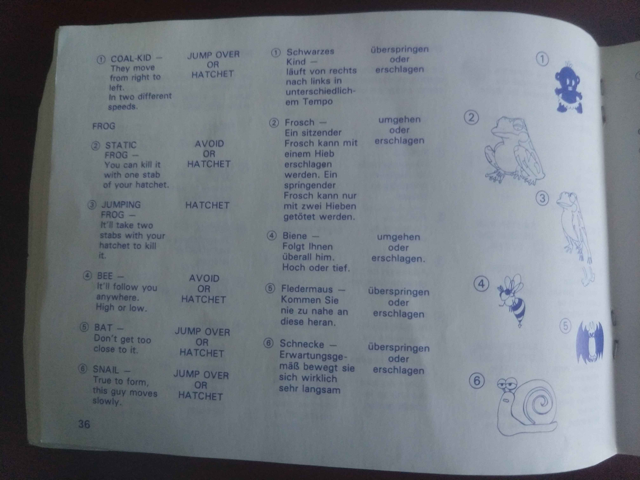 ① COAL-KID —
They move
from right to
left.
In two different
speeds.
JUMP OVER
OR
HATCHET
FROG
② STATIC
FROG —
You can kill it
with one stab
of your hatchet.
AVOID
OR
HATCHET
③ JUMPING
FROG —
It'll take two
stabs with your
hatchet to kill
it.
HATCHET
④ BEE —
It'll follow you
anywhere.
High or low.
AVOID
OR
HATCHET
⑤ BAT —
Don't get too
close to it.
JUMP OVER
OR
HATCHET
⑥ SNAIL —
True to form,
this guy moves
slowly.
JUMP OVER
OR
HATCHET
36
① Schwarzes
Kind —
läuft von rechts
nach links in
unterschiedlich-
em Tempo
überspringen
oder
erschlagen
② Frosch —
Ein sitzender
Frosch kann mit
einem Hieb
erschlagen
werden. Ein
springender
Frosch kann nur
mit zwei Hieben
getötet werden.
umgehen
oder
erschlagen
④ Biene —
Folgt Ihnen
überall him.
Hoch oder tief.
umgehen
oder
erschlagen.
⑤ Fledermaus —
Kommen Sie
nie zu nahe an
diese heran.
überspringen
oder
erschlagen
⑥ Schnecke —
Erwartungsge-
mäß bewegt sie
sich wirklich
sehr langsam
überspringen
oder
erschlagen
①
②
③
④
⑤
⑥